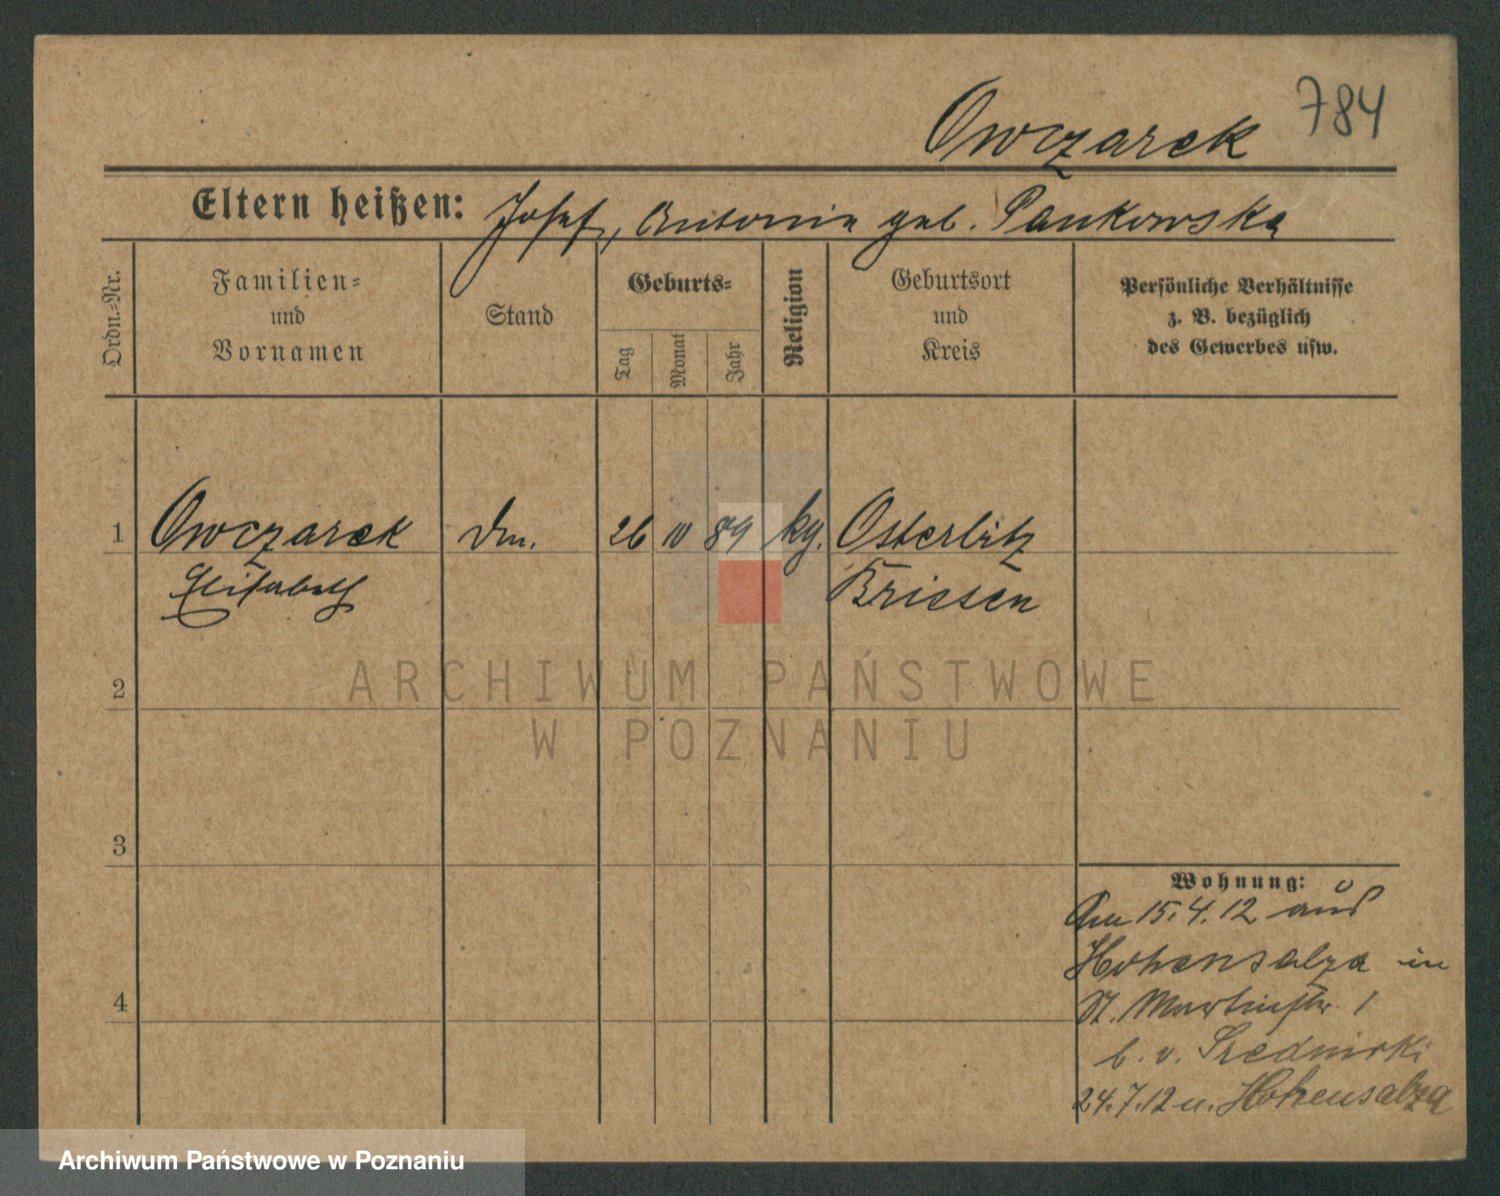 784
Owczarek
Eltern heißen: Josef, Antonie geb. Pankowska
Ordn.-Nr.
Familien-
und
Vornamen
Stand
Geburts-
Tag
Monat
Jahr
Religion
Geburtsort
und
Kreis
Persönliche Verhältnisse
z. B. bezüglich
des Gewerbes usw.
1 Owczarek 26 IV 89 kg. Osterbitz
Elisabeth Briesen
2
ARCHIWUM PAŃSTWOWE
W POZNANIU
3
4
Wohnung:
Am 15.4.12 aus
Hohensalza in
St. Martinstr. 1
b. v. Srednicki
24.7.12 n. Hohensalza
Archiwum Państwowe w Poznaniu